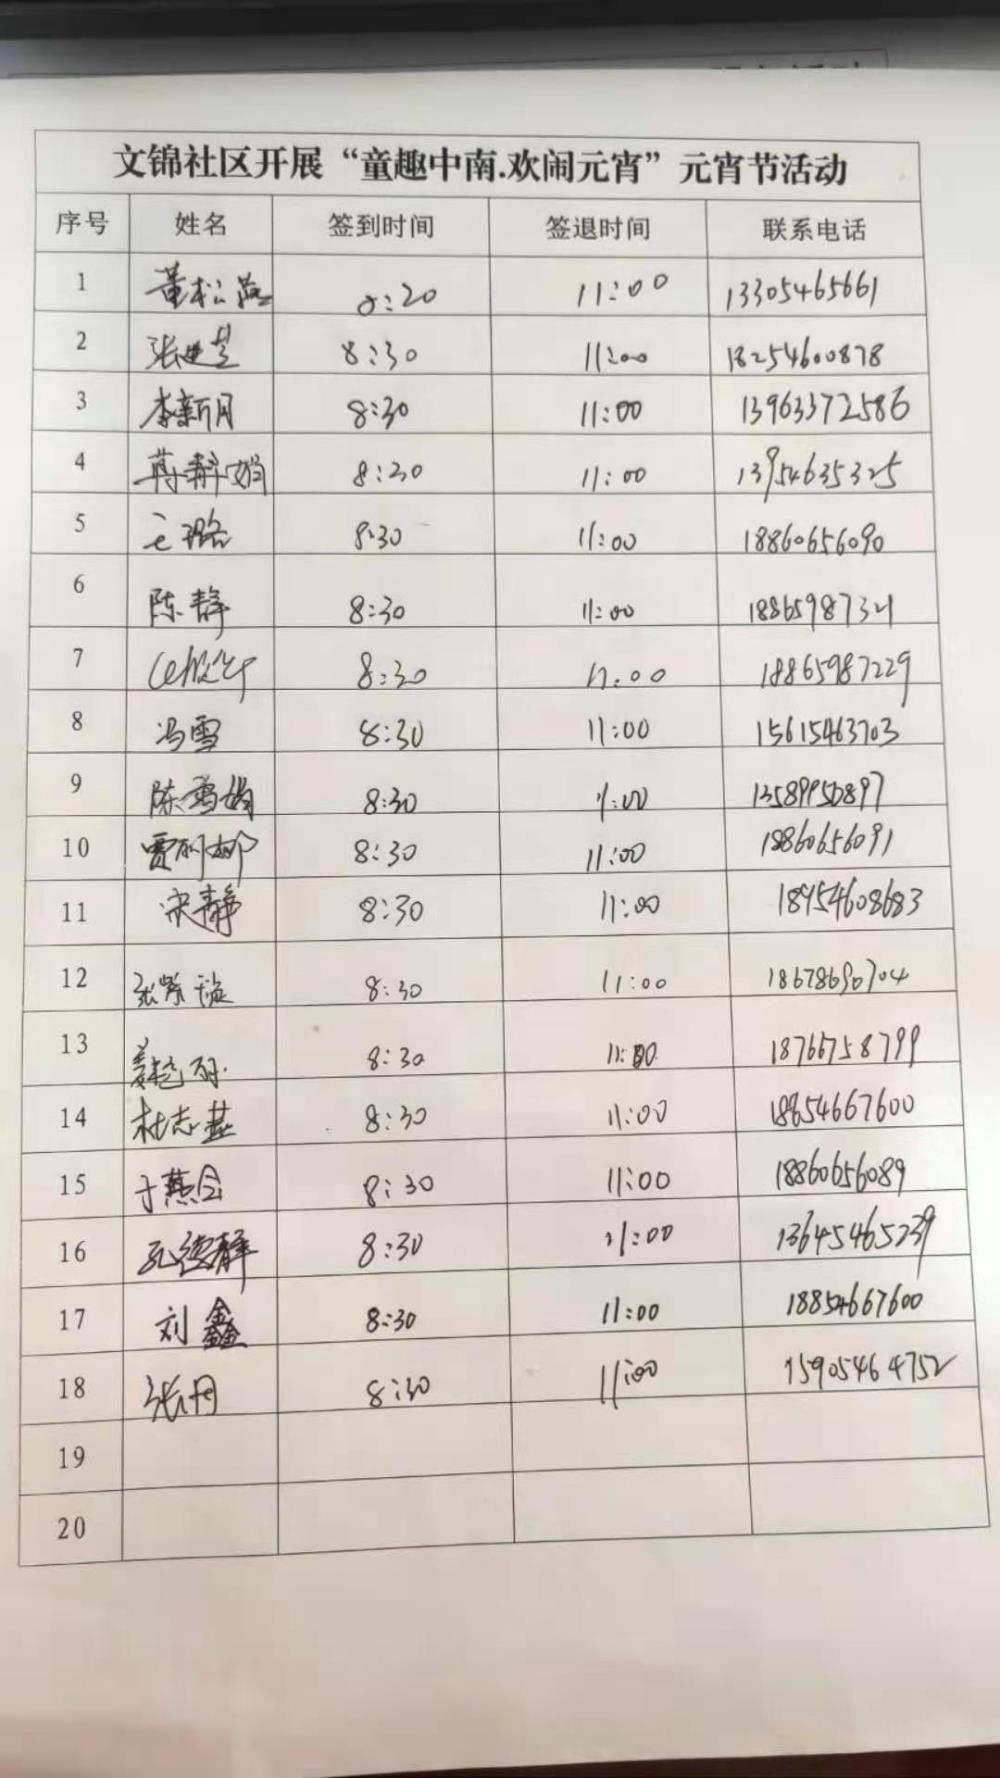 文锦社区开展“童趣中南.欢闹元宵”元宵节活动
序号 姓名 签到时间 签退时间 联系电话
1 董松 8:20 11:00 13305465661
2 张 8:30 11:00 18254600878
3 李新月 8:30 11:00 13963372586
4 蒋静娟 8:30 11:00 13954635325
5 王璐 8:30 11:00 18860656090
6 陈静 8:30 11:00 18865987321
7 8:30 11:00 18865987229
8 冯雪 8:30 11:00 15615463703
9 陈雪娟 8:30 11:00 13589950897
10 贾丽娜 8:30 11:00 18860656091
11 宋静 8:30 11:00 18954608683
12 张紫璇 8:30 11:00 18678690704
13 姜艳 8:30 11:00 18766758799
14 杜志燕 8:30 11:00 18654667600
15 于燕会 8:30 11:00 18860656089
16 孔德静 8:30 11:00 13645465239
17 刘鑫 8:30 11:00 18854667600
18 张丹 8:30 11:00 15905464752
19
20